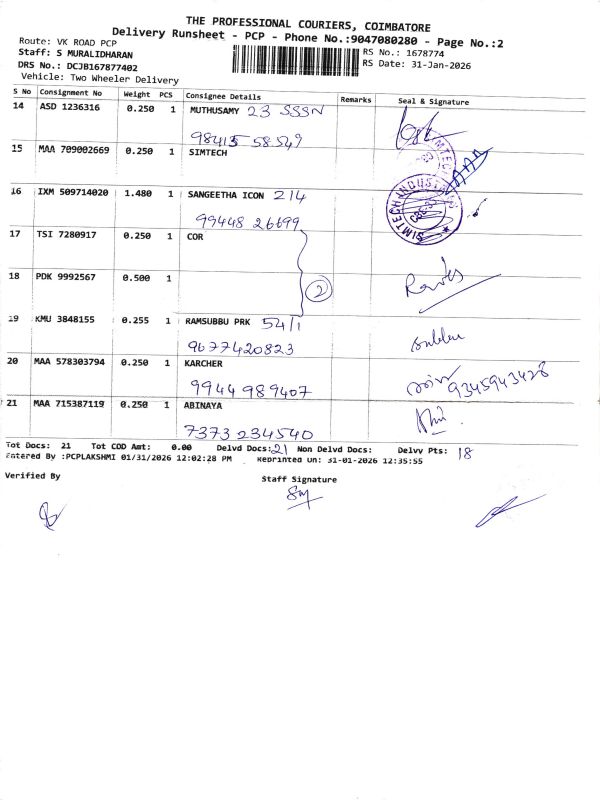 THE PROFESSIONAL COURIERS, COIMBATORE
Delivery Runsheet - PCP - Phone No.:9047080280 - Page No.:2
Route: VK ROAD PCP
RS No.: 1678774
Staff: S MURALIDHARAN
RS Date: 31-Jan-2026
DRS No.: DCJB167877402
Vehicle: Two Wheeler Delivery
S No Consignment No Weight PCS Consignee Details Remarks Seal & Signature
14 ASD 1236316 0.250 1 MUTHUSAMY 23 SSSN
98415 58549
15 MAA 709002669 0.250 1 SIMTECH
16 IXM 509714020 1.480 1 SANGEETHA ICON 214
99448 26699
SIMTECH INDUSTRIES
17 TSI 7280917 0.250 1 COR
18 PDK 9992567 0.500 1
2
19 KMU 3848155 0.255 1 RAMSUBBU PRK 54/1
9677420823
20 MAA 578303794 0.250 1 KARCHER
9944 989407 9345943428
21 MAA 715387119 0.250 1 ABINAYA
7373 234540
Tot Docs: 21 Tot COD Amt: 0.00 Delvd Docs: 21 Non Delvd Docs: Delvy Pts: 18
Entered By :PCPLAKSHMI 01/31/2026 12:02:28 PM Reprinted On: 31-01-2026 12:35:55
Verified By
Staff Signature